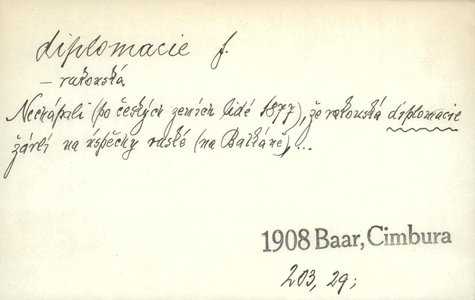 diplomacie f.
– rakouská
Nechápali (po českých zemích lidé 1877), že rakouská diplomacie
žárlí na úspěchy ruské (na Balkáně), ...
1908 Baar, Cimbura
203, 29;